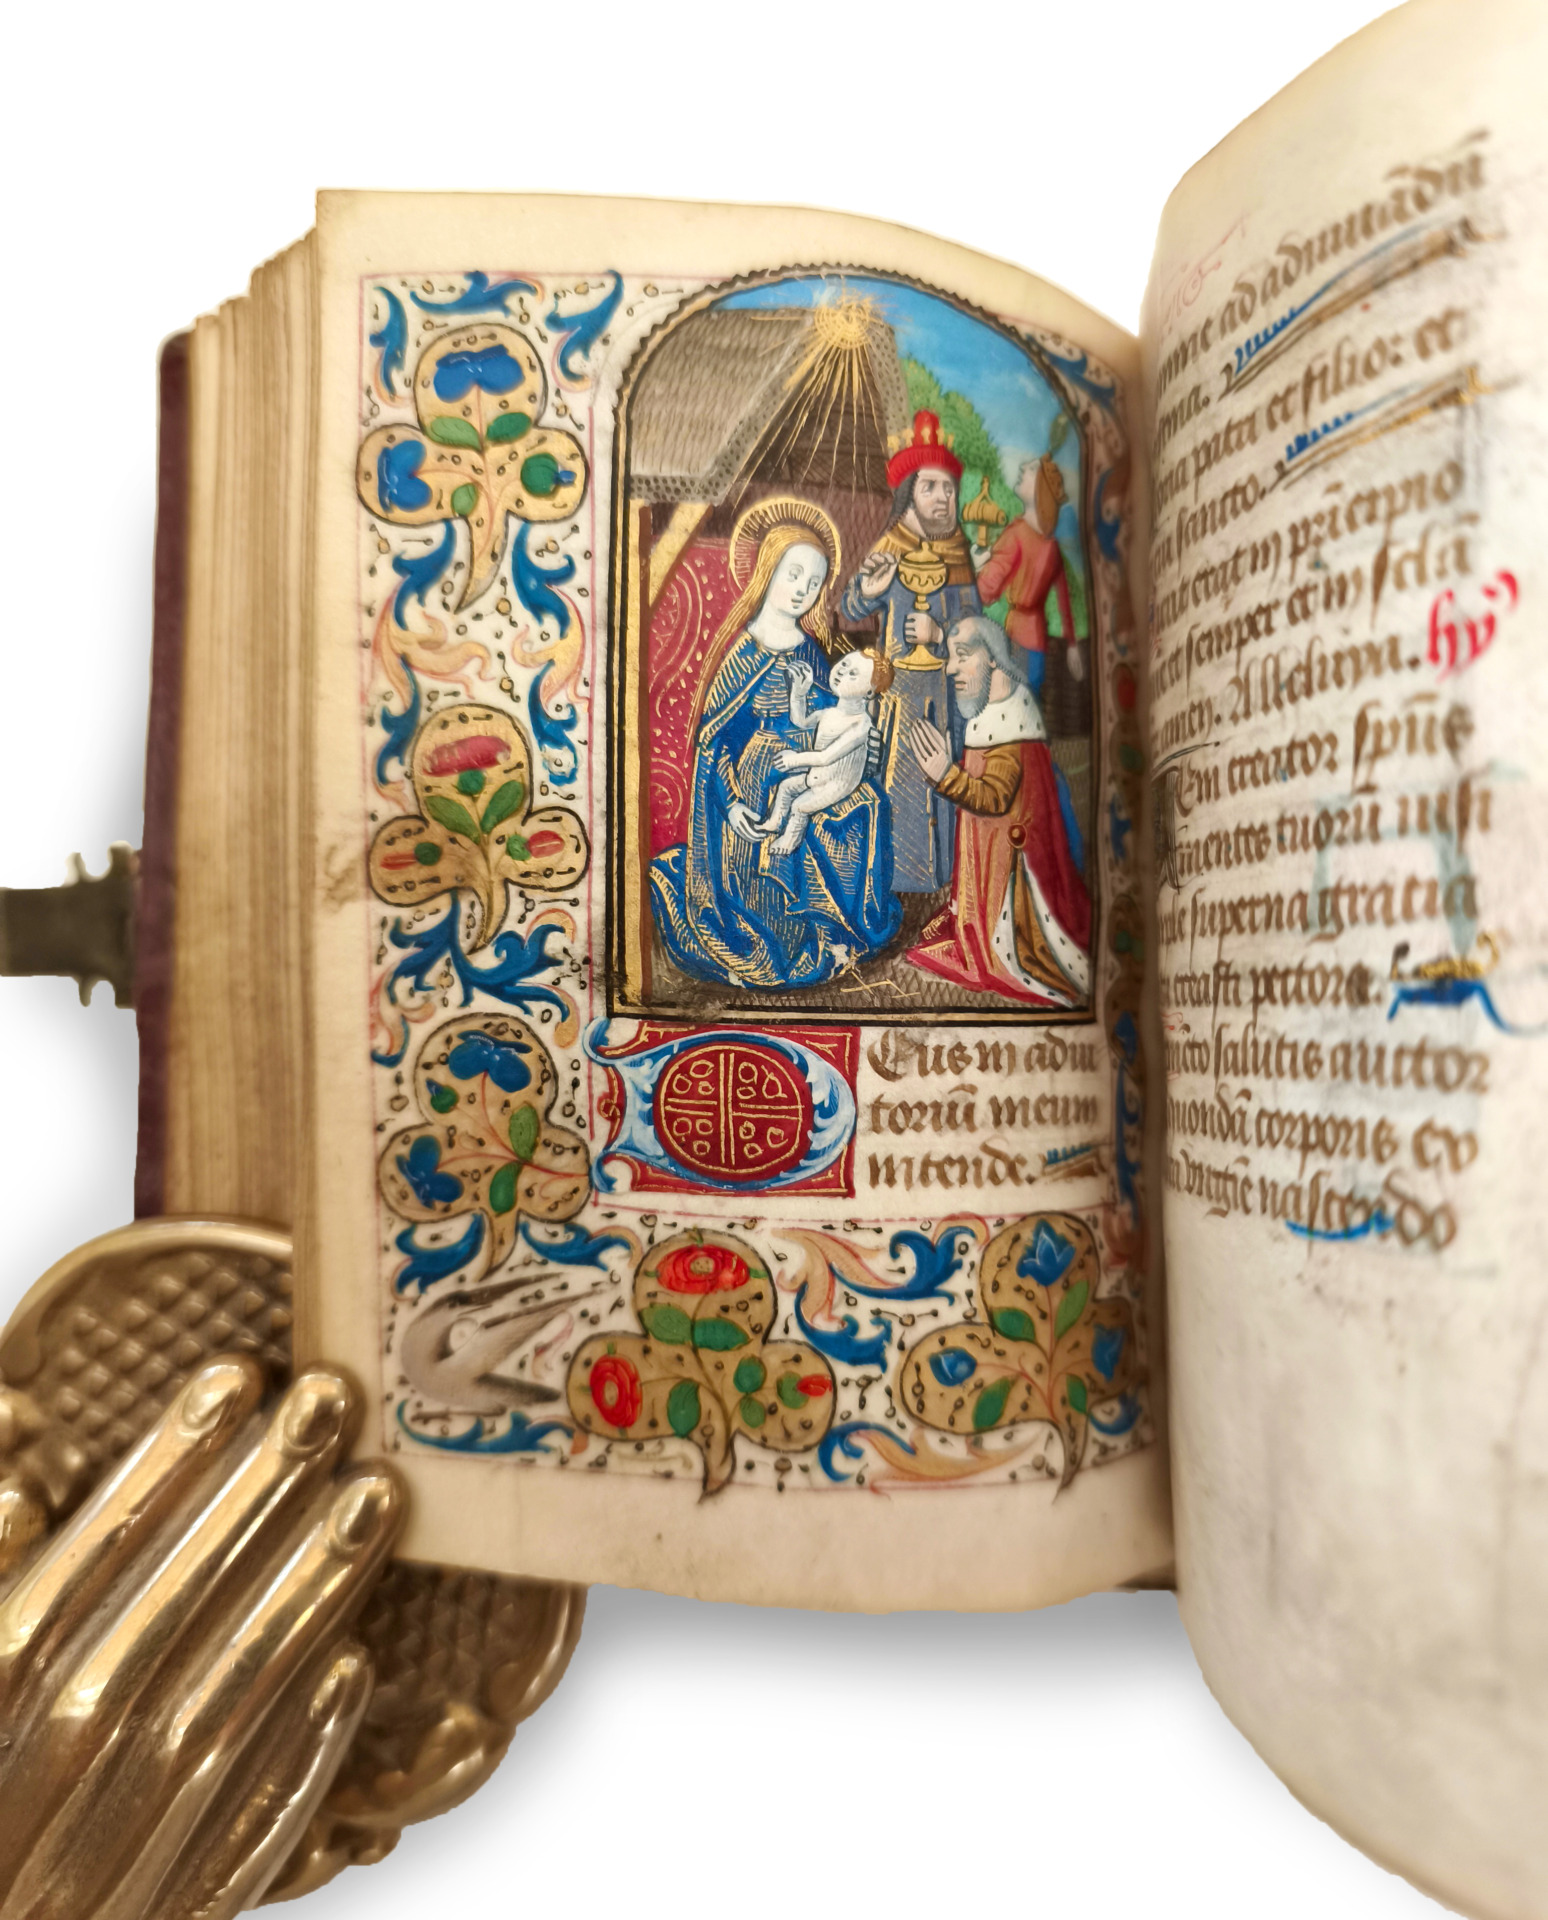 Deus in adiu
toriũ meum
intende.
mine ad adiuuãdũ
stina.
oria patri et filio: et
ritui sancto.
icut erat in prĩcipio
et semper et in secla
amen. Alleluya. hỹ
Eni creator spũs
mentes tuorũ uisi
ple superna gratia
creasti pectora.
ento salutis auctor
quondã corporis ex
ta uirgĩe nascendo